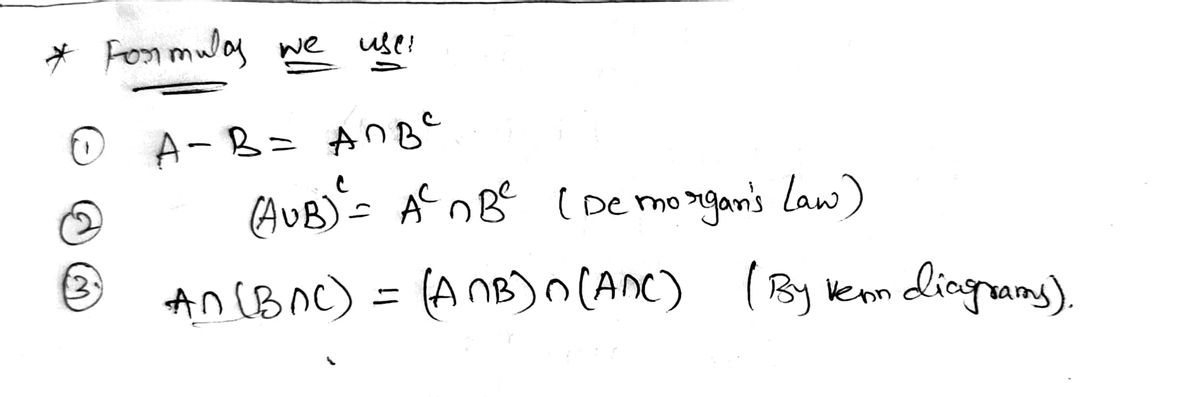 * Formulas we use:
① A - B = A ∩ Bᶜ
② (A∪B)ᶜ = Aᶜ ∩ Bᶜ (Demorgan's Law)
③ A∩(B∩C) = (A∩B)∩(A∩C) (By venn diagrams).